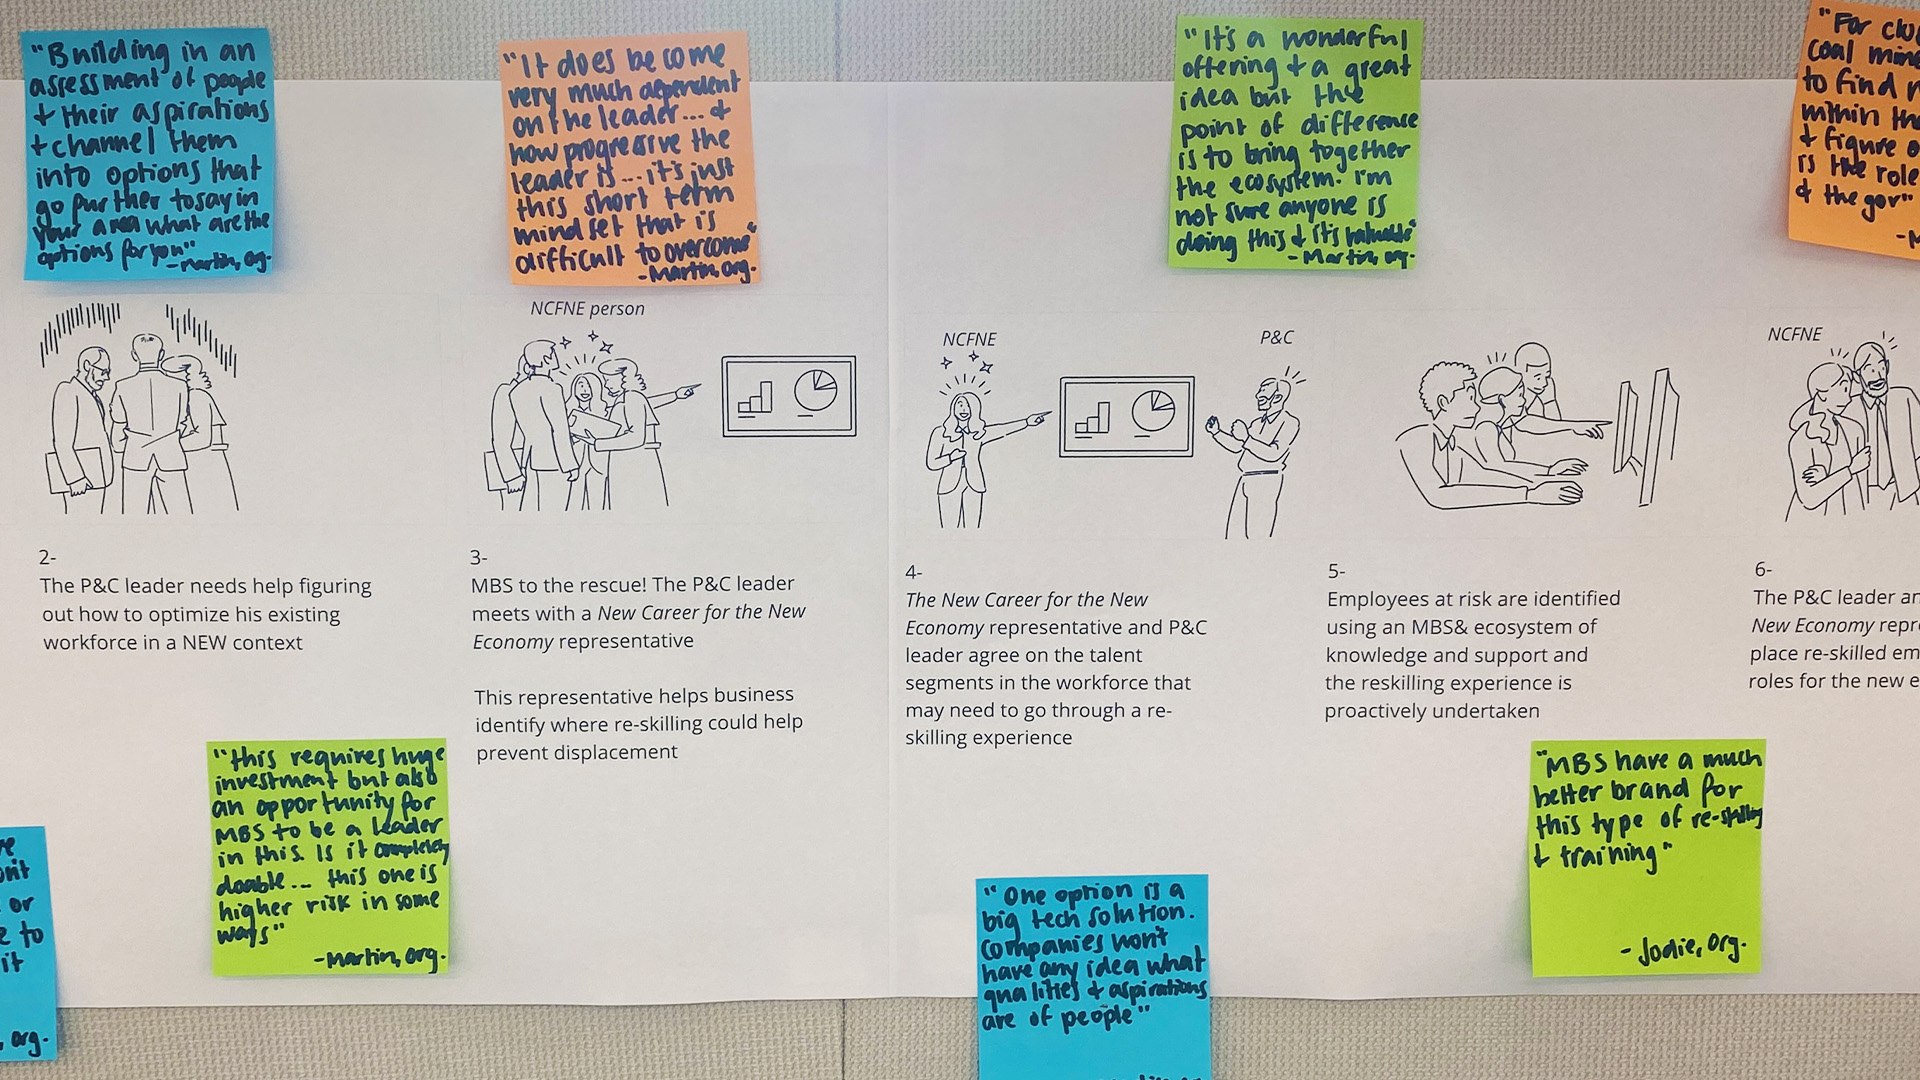 "Building in an
assessment of people
+ their aspirations
+ channel them
into options that
go further to say in
your area what are the
options for you"
- Martin, org.
"It does become
very much dependent
on the leader... +
how progressive the
leader is... it's just
this short term
mindset that is
difficult to overcome"
- Martin, org.
"It's a wonderful
offering + a great
idea but the
point of difference
is to bring together
the ecosystem. I'm
not sure anyone is
doing this + it's valuable"
- Martin, org.
"For
coal
to find
within
+ figure
is the role
+ the gov"
NCFNE person
NCFNE
P&C
NCFNE
2-
The P&C leader needs help figuring
out how to optimize his existing
workforce in a NEW context
3-
MBS to the rescue! The P&C leader
meets with a New Career for the New
Economy representative
This representative helps business
identify where re-skilling could help
prevent displacement
4-
The New Career for the New
Economy representative and P&C
leader agree on the talent
segments in the workforce that
may need to go through a re-
skilling experience
5-
Employees at risk are identified
using an MBS& ecosystem of
knowledge and support and
the reskilling experience is
proactively undertaken
6-
The P&C leader
New Economy
place re-skilled
roles for the new
"this requires huge
investment but also
an opportunity for
MBS to be a leader
in this. Is it completely
doable... this one is
higher risk in some
ways"
- Martin, org.
"MBS have a much
better brand for
this type of re-skilling
+ training"
- Jodie, org.
or
to
it
org.
"One option is a
big tech solution.
Companies won't
have any idea what
qualities + aspirations
are of people"